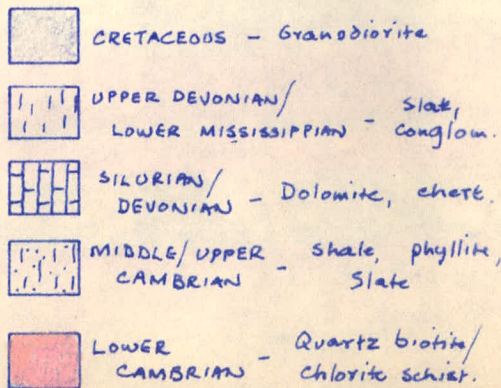 CRETACEOUS - Granodiorite
UPPER DEVONIAN/
LOWER MISSISSIPPIAN - Slate, conglom.
SILURIAN/
DEVONIAN - Dolomite, chert.
MIDDLE/UPPER
CAMBRIAN - Shale, phyllite,
Slate
LOWER
CAMBRIAN - Quartz biotite/
Chlorite schist.